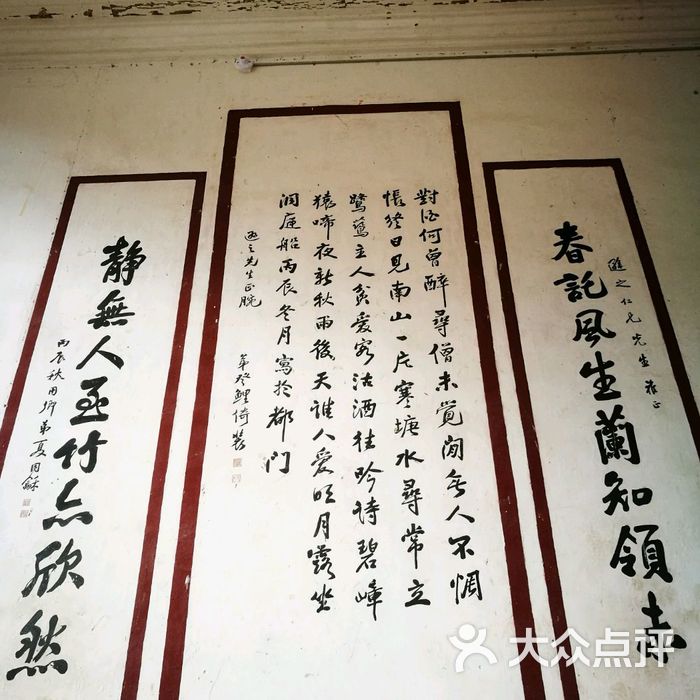 春託風生蘭知領未
之仁兄先生雅正
對酒何曾醉尋僧未覺閒無人不惆
悵終日見南山一片寒塘水尋常立
鷺鷥主人貧愛客沽酒往吟詩碧嶂
猿啼夜新秋雨後天誰人愛明月露坐
洞庭船丙辰冬月寫於都門
之先生正腕
弟鯉倚裝
靜無人至竹亦欣然
丙辰秋弟夏同龢
大众点评